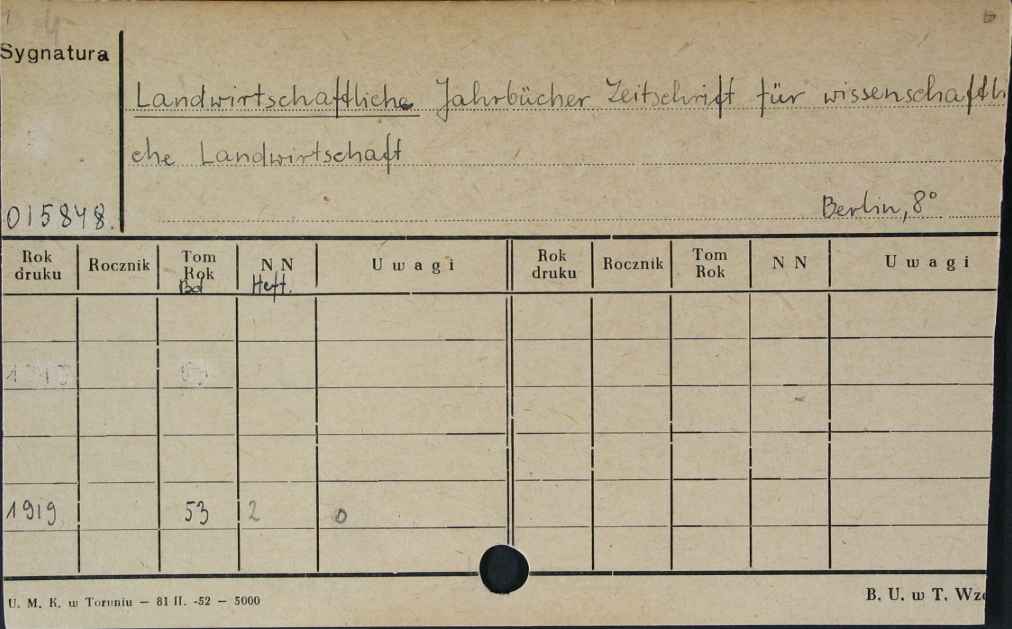 Sygnatura
Landwirtschaftliche Jahrbücher Zeitschrift für wissenschaftli
che Landwirtschaft
015848.
Berlin, 8°
Rok druku Rocznik Tom Rok Bd NN Heft. Uwagi Rok druku Rocznik Tom Rok NN Uwagi
1919 53 2 0
U. M. K. w Toruniu — 81 II. -52 — 5000
B. U. w T. Wzó